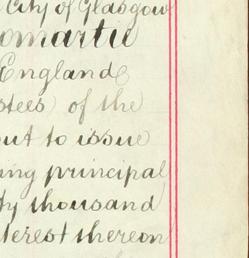 City of Glasgow
omartie
England
stees) of the
out to issue
ing principal
ty thousand
terest thereon